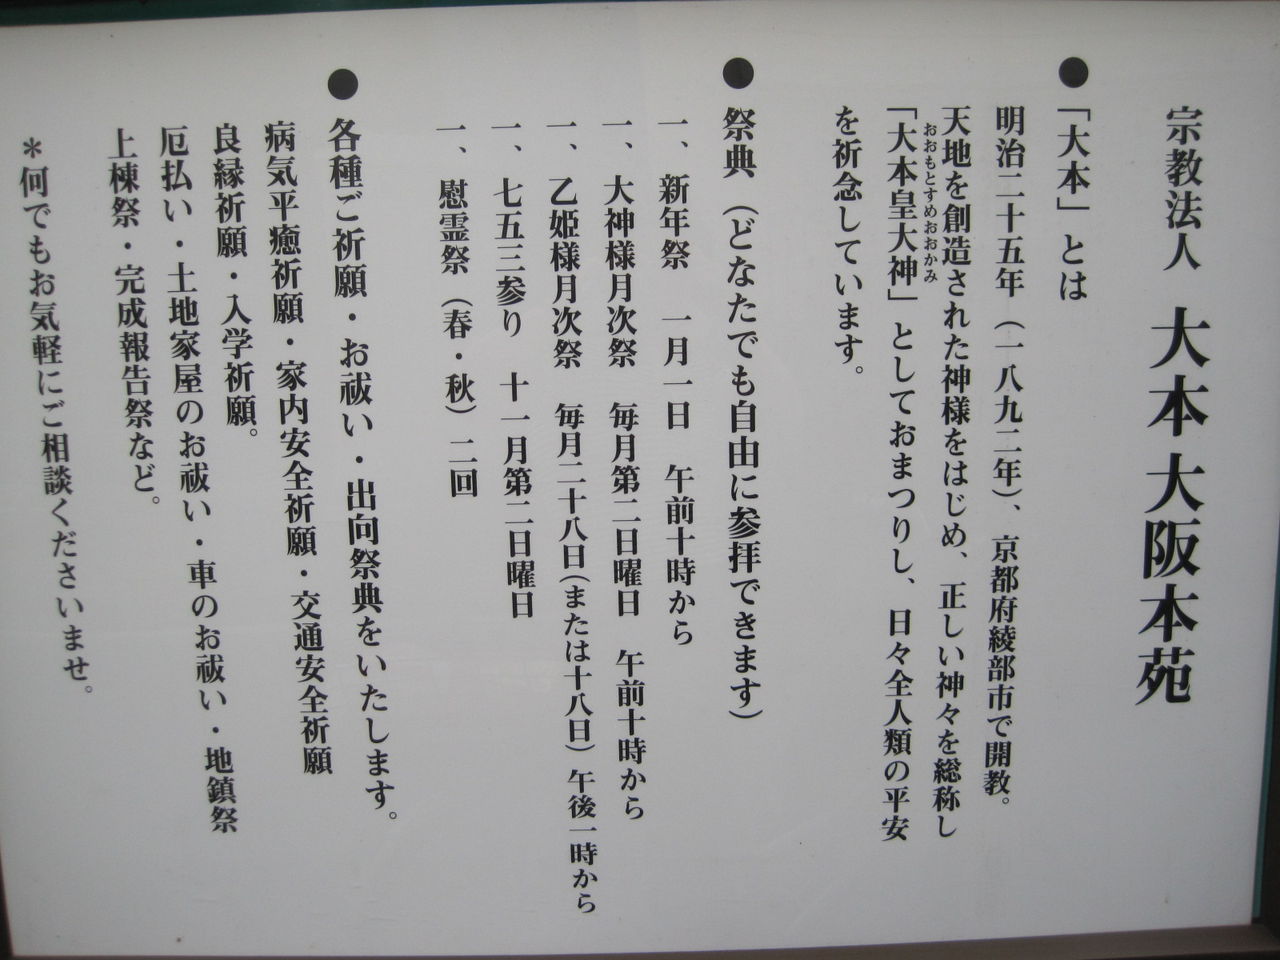 宗教法人　大本 大阪本苑
●「大本」とは
明治二十五年（一八九二年）、京都府綾部市で開教。
天地を創造された神様をはじめ、正しい神々を総称し
おおもとすめおおかみ
「大本皇大神」としておまつりし、日々全人類の平安
を祈念しています。
●祭典（どなたでも自由に参拝できます）
一、新年祭　一月一日　午前十時から
一、大神様月次祭　毎月第二日曜日　午前十時から
一、乙姫様月次祭　毎月二十八日（または十八日）午後一時から
一、七五三参り　十一月第二日曜日
一、慰霊祭（春・秋）二回
●各種ご祈願・お祓い・出向祭典をいたします。
病気平癒祈願・家内安全祈願・交通安全祈願
良縁祈願・入学祈願。
厄払い・土地家屋のお祓い・車のお祓い・地鎮祭
上棟祭・完成報告祭など。
＊何でもお気軽にご相談くださいませ。